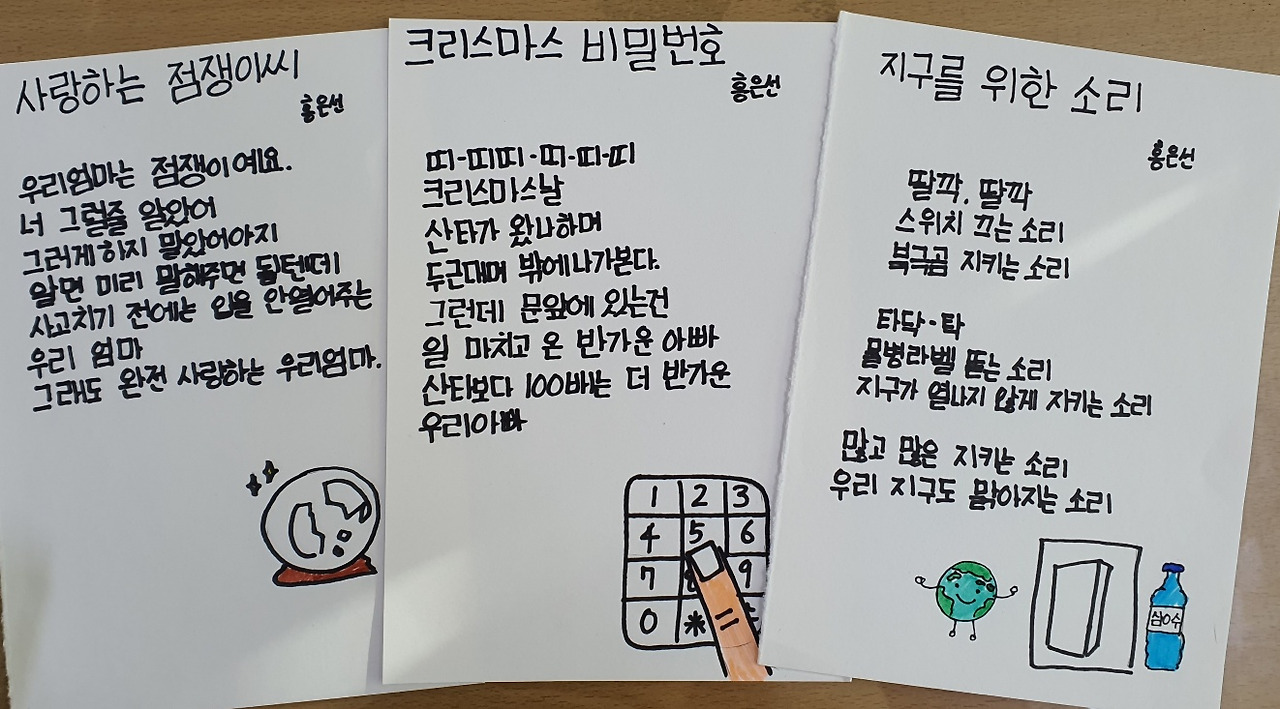 사랑하는 점쟁이씨
홍은선
우리엄마는 점쟁이예요.
너 그럴줄 알았어
그러게하지 말았어야지
알면 미리 말해주면 될텐데
사고치기 전에는 입을 안열어주는
우리 엄마
그래도 완전 사랑하는 우리엄마.
크리스마스 비밀번호
홍은선
띠-띠띠-띠-띠-띠
크리스마스날
산타가 왔나하며
두근대며 밖에나가본다.
그런데 문앞에 있는건
일 마치고 온 반가운 아빠
산타보다 100배는 더 반가운
우리아빠
1 2 3
4 5 6
7 8 9
0 *
지구를 위한 소리
홍은선
딸깍, 딸깍
스위치 끄는 소리
북극곰 지키는 소리
타닥-탁
물병라벨 뜯는 소리
지구가 열나지 않게 지키는 소리
많고 많은 지키는 소리
우리 지구도 맑아지는 소리